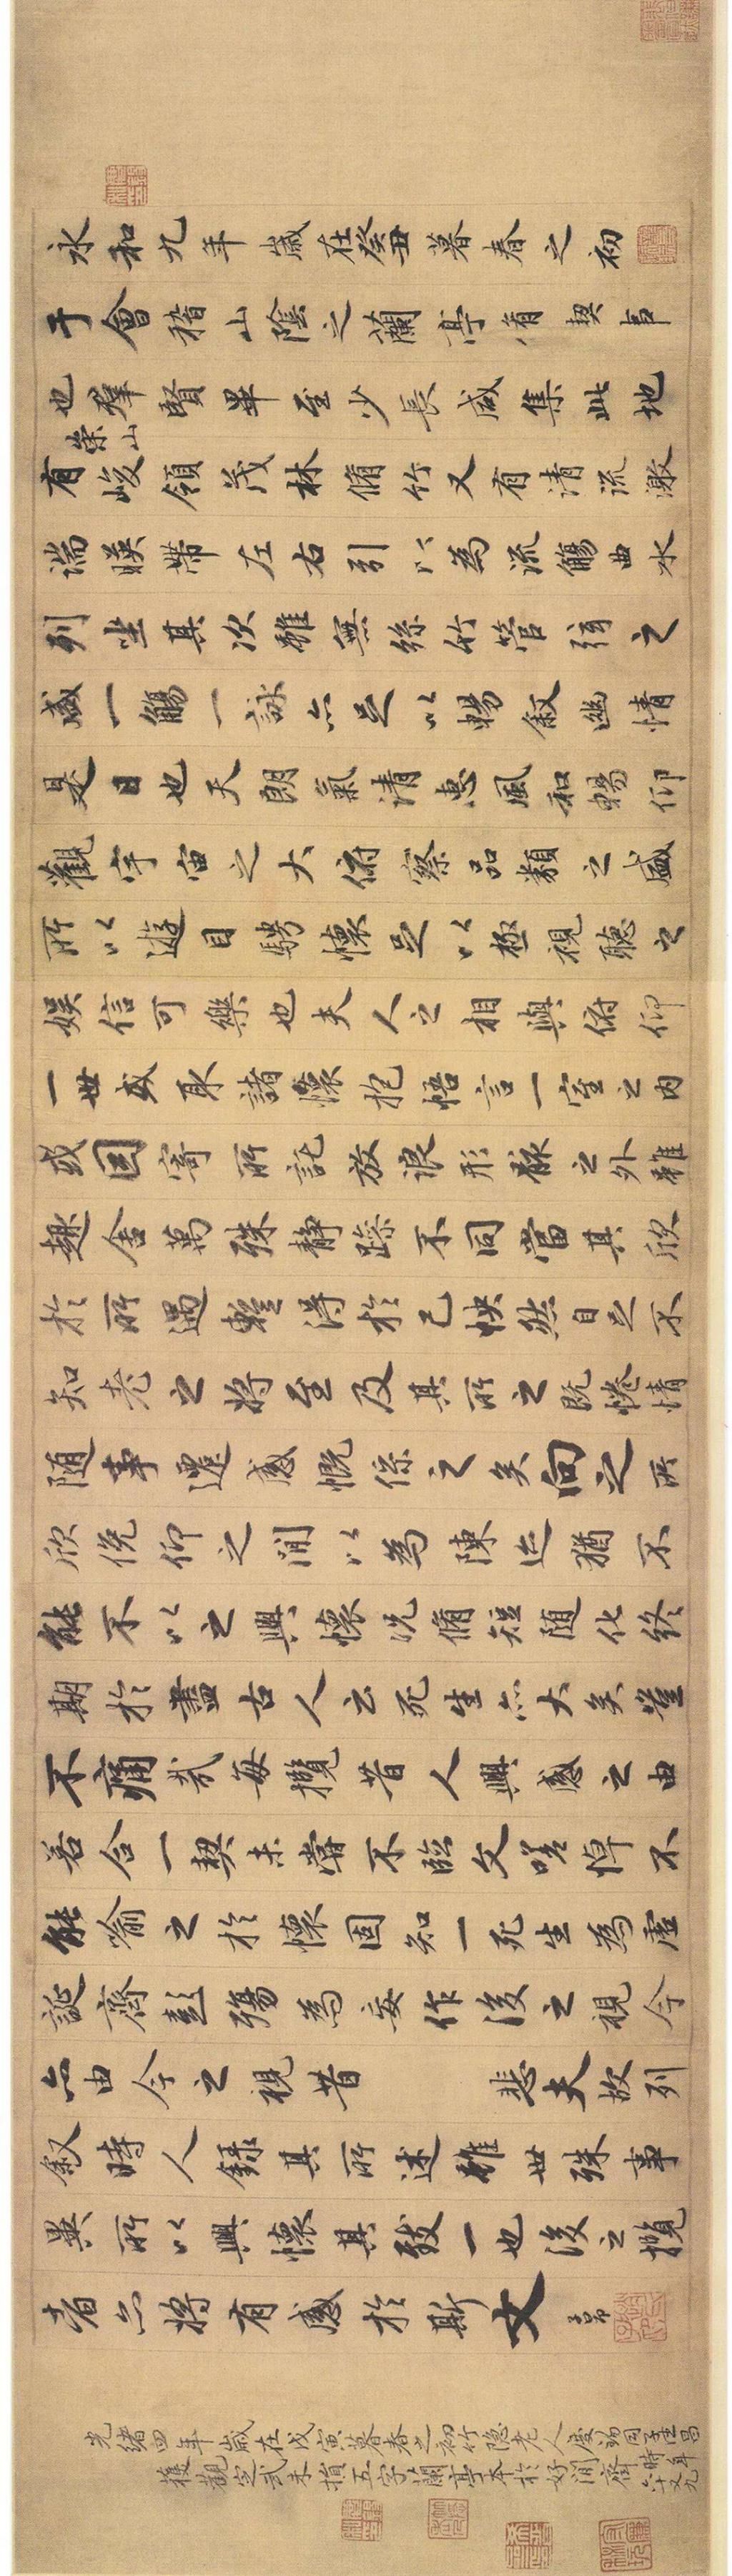 永和九年歲在癸丑暮春之初
于會稽山陰之蘭亭脩禊事
也羣賢畢至少長咸集此地
有崇山峻領茂林脩竹又有清流激
湍暎帶左右引以為流觴曲水
列坐其次雖無絲竹管弦之
盛一觴一詠亦足以暢敘幽情
是日也天朗氣清惠風和暢仰
觀宇宙之大俯察品類之盛
所以遊目騁懷足以極視聽之
娛信可樂也夫人之相與俯仰
一世或取諸懷抱悟言一室之內
或因寄所託放浪形骸之外雖
趣舍萬殊靜躁不同當其欣
於所遇暫得於己怏然自足不
知老之將至及其所之既惓情
隨事遷感慨係之矣向之所
欣俛仰之閒以為陳迹猶不
能不以之興懷況脩短隨化終
期於盡古人云死生亦大矣豈
不痛哉每攬昔人興感之由
若合一契未嘗不臨文嗟悼不
能喻之於懷固知一死生為虛
誕齊彭殤為妄作後之視今
亦由今之視昔 悲夫故列
敘時人錄其所述雖世殊事
異所以興懷其致一也後之攬
者亦將有感於斯文
子昂
光緒四年歲在戊寅暮春之初竹隱老人
獲觀定武未損五字蘭亭本於好閒齋時年六十又九